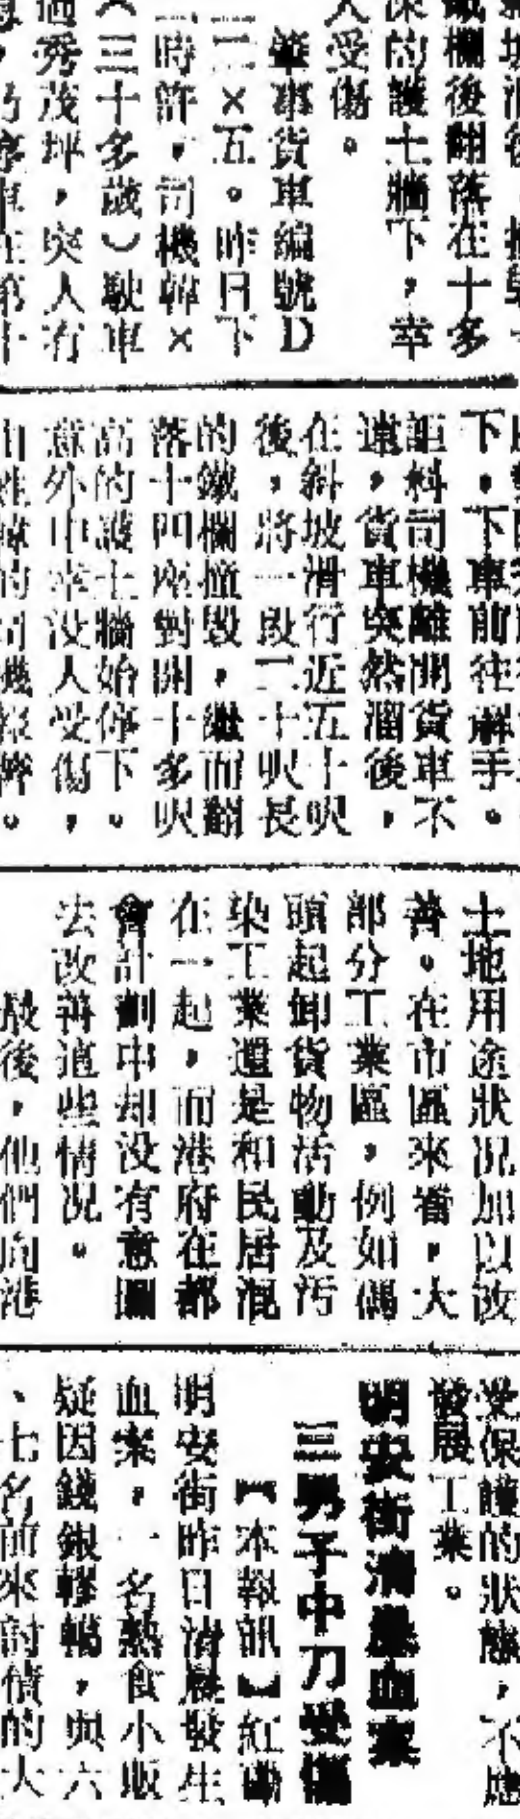 深的護土牆下，幸
人受傷。
肇事貨車編號D
二×五。昨日下
時許，司機韓×
（三十多歲）駛車
過秀茂坪，突人有
下，下車前往解手。
詎料司機離開貨車不
遠，貨車突然溜後，
在斜坡滑行近五十呎
後，將一段二十呎長
的鐵欄撞毀，繼而翻
落十四座對開十多呎
高的護土牆始停下。
意外中幸没人受傷，
土地用途狀况加以改
善。在市區來看，大
部分工業區，例如偶
頭起卸貨物活動及污
染工業還是和民居混
在一起，而港府在都
會計劃中却没有意圖
去改善這些情况。
最後，他們向港
受保護的狀態，不應
發展工業。
明安街清晨血案
三男子中刀受傷
【本報訊】紅磡
明安街昨日清晨發生
血案，一名熟食小販
疑因錢銀轇轕，與六
、七名前來討債的大